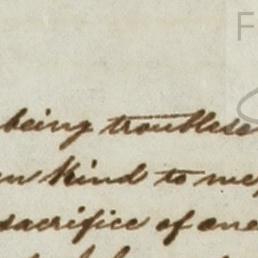 F
being troublese
en kind to me,
sacrifice of one